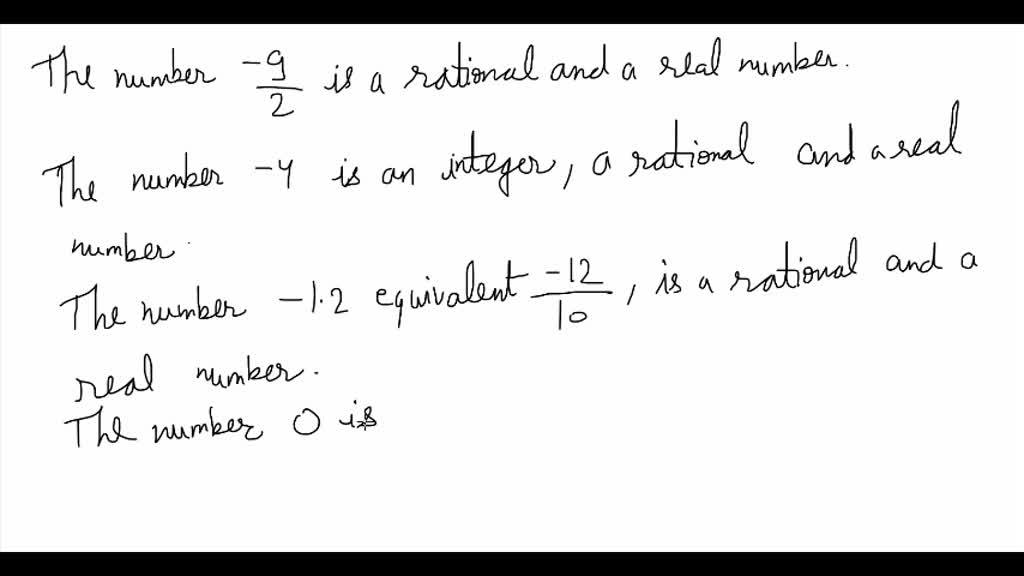 The number -9/2 is a rational and a real number.
The number -4 is an integer, a rational and a real
number.
The number -1.2 equivalent -12/10, is a rational and a
real number.
The number 0 is